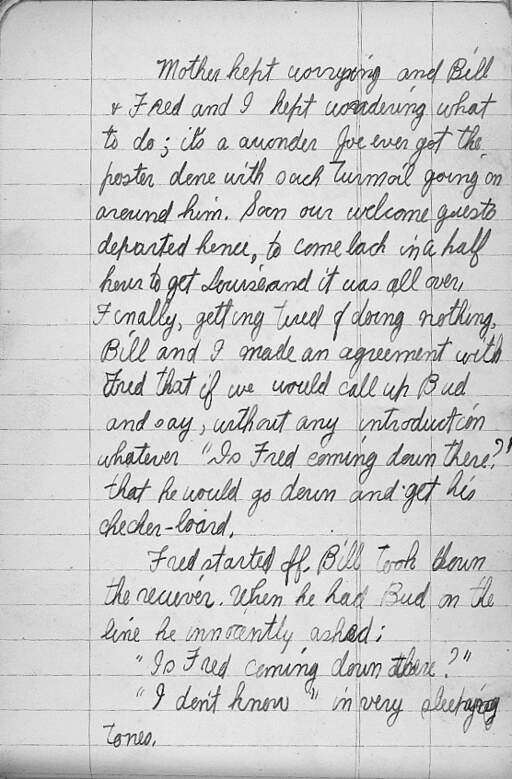 Mother kept worrying and Bill
& Fred and I kept wondering what
to do; it's a wonder Joe ever got the
poster done with such turmoil going on
around him. Soon our welcome guests
departed hence, to come back in a half
hour to get Louise and it was all over.
Finally, getting tired of doing nothing,
Bill and I made an agreement with
Fred that if we would call up Bud
and say, without any introduction
whatever "Is Fred coming down there?"
that he would go down and get his
checker-board.
Fred started off. Bill took down
the reciever. When he had Bud on the
line he innocently asked:
"Is Fred coming down there?"
"I don't know" in very sleepy
tones.